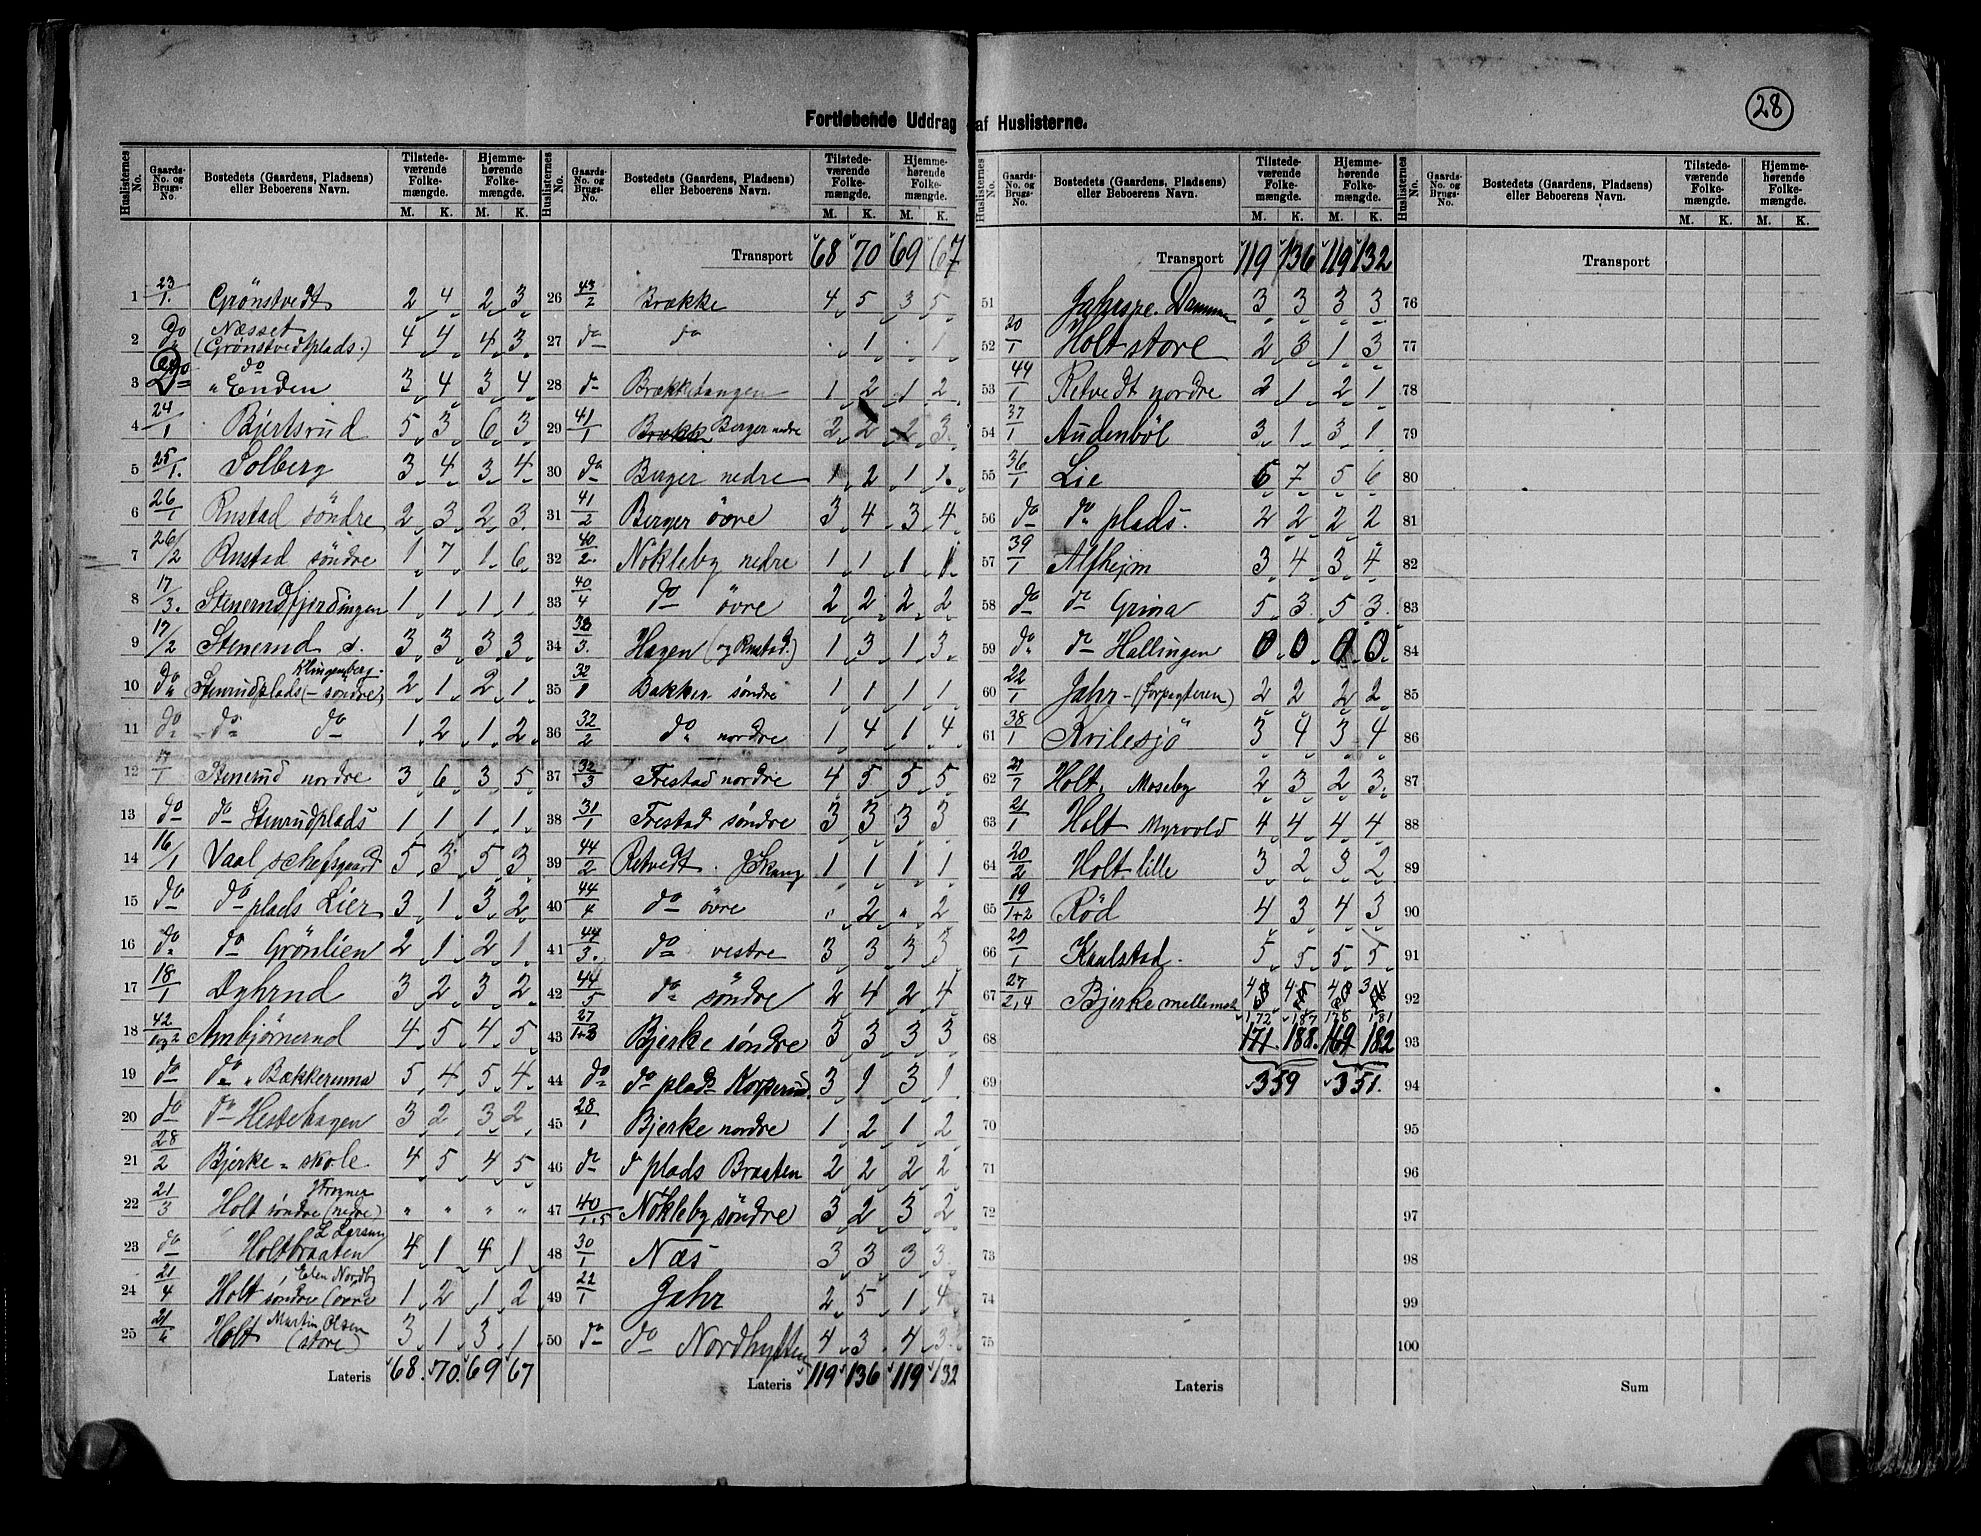 28
Fortløbende Uddrag af Huslisterne.
Huslisternes No. Gaards-No. og Brugs-No. Bostedets (Gaardens, Pladsens) eller Beboerens Navn. Tilstedeværende Folkemængde. M. K. Hjemmehørende Folkemængde. M. K.
1 23/1. Grönstvedt 2 4 2 3
2 do Næsset (Grønstvedtplads.) 4 4 4 3
3 do do " Enden 3 4 3 4
4 24/1 Bjertsrud 5 3 6 3
5 25/1. Solberg 3 4 3 4
6 26/1 Rustad söndre 2 3 2 3
7 26/2 Rustad söndre 1 7 1 6
8 17/3. Stenerudfjerdingen 1 1 1 1
9 17/2 Stenerud s. 3 3 3 3
10 do Klingenberg Stenrudplads (söndre) 2 1 2 1
11 do do do 1 2 1 2
12 17/1 Stenerud nordre 3 6 3 5
13 do do Stenrudplads 1 1 1 1
14 16/1 Vaal schefsgaard 5 3 5 3
15 do do plads Lier 3 1 3 2
16 do do Grönlien 2 1 2 1
17 18/1 Dyhrud 3 2 3 2
18 42/1og2 Ambjörnerud 4 5 4 5
19 do do " Bækkeruma 5 4 5 4
20 do do Hestehagen 3 2 3 2
21 28/2 Bjerke - skole 4 5 4 5
22 21/3 Holt söndre (nedre) " " " "
23 do L Larsen Holtbraaten 4 1 4 1
24 21/4 Elen Nordby Holt söndre (övre 1 2 1 2
25 21/6 Holt Martin Olsen (store) 3 1 3 1
Lateris 68 70 69 67
Transport 68 70 69 67
26 43/2 Brække 4 5 3 5
27 do do . 1 . 1
28 do Brækketangen 1 2 1 2
29 41/1 Berger nedre 2 2 2 3
30 do Berger nedre 1 2 1 1
31 41/2 Berger övre 3 4 3 4
32 40/2. Nökleby nedre 1 1 1 1
33 40/4 do övre 2 2 2 2
34 33/3. Hagen (og Rustad.) 1 3 1 3
35 32/1 Bakker söndre 1 1 1 1
36 32/2 do nordre 1 4 1 4
37 32/3 Frestad nordre 4 5 5 5
38 31/1 Frestad söndre 3 3 3 3
39 44/2 Retvedt J Skaug 1 1 1 1
40 44/4 do övre " 2 " 2
41 44/3. do vestre 3 3 3 3
42 44/5 do söndre 2 4 2 4
43 27/1+3 Bjerke söndre 3 3 3 3
44 do do plads Korperud. 3 1 3 1
45 28/1 Bjerke nordre 1 2 1 2
46 do d plads Braaten 2 2 2 2
47 40/1.5 Nökleby söndre 3 2 3 2
48 30/1 Næs 3 3 3 3
49 22/1 Jahr 2 5 1 4
50 do do Nordhytten 4 3 4 3
Lateris 119 136 119 132
Transport 119 136 119 132
51 Jahrspe. Dammen 3 3 3 3
52 20/1 Holt store 2 3 1 3
53 44/1 Retvedt nordre 2 1 2 1
54 37/1 Audenböl 3 1 3 1
55 36/1 Lie 6 7 5 6
56 do do plads. 2 2 2 2
57 39/1 Alfhejm 3 4 3 4
58 do do Grina 5 3 5 3
59 do do Hallingen 0 0 0 0
60 22/1 Jahr - (Forpagteren) 2 2 2 2
61 38/1 Kvilesjö 3 4 3 4
62 21/7 Holt, Moseby 2 3 2 3
63 21/1 Holt Myrvold 4 4 4 4
64 20/2 Holt lille 3 2 3 2
65 19/1+2 Röd 4 3 4 3
66 29/1 Kaalstad. 5 5 5 5
67 27/2,4 Bjerke mellem
172 187 178 181
68 171 188 169 182
69 359 351.
70
71
72
73
74
75
Lateris
Transport
76
77
78
79
80
81
82
83
84
85
86
87
88
89
90
91
92
93
94
95
96
97
98
99
100
Sum